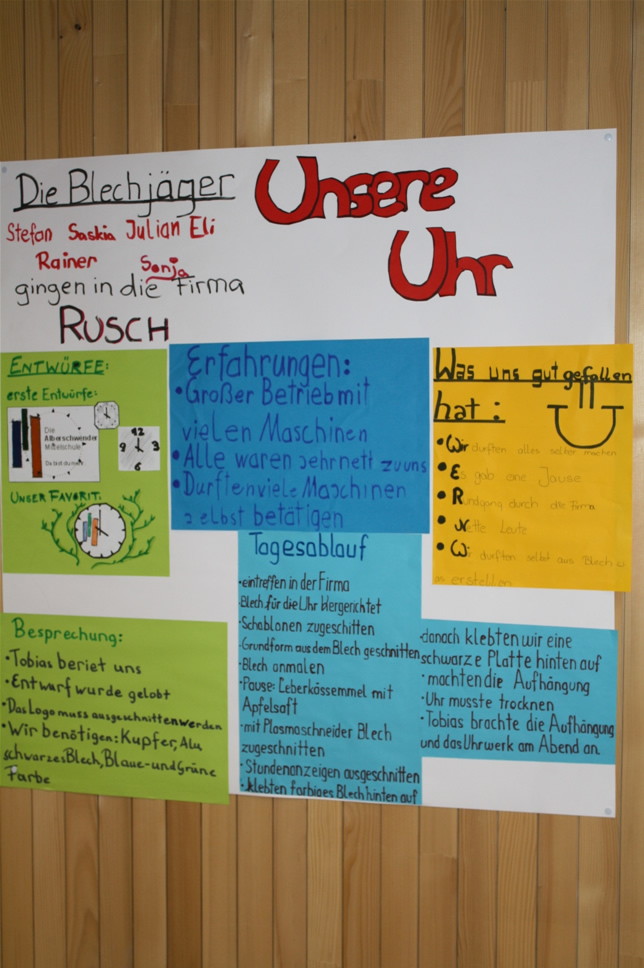 Die Blechjäger
Unsere
Uhr
Stefan Saskia Julian Eli
Rainer Sonja
gingen in die Firma
RUSCH
ENTWÜRFE:
erste Entwürfe:
Die
Alberschwender
Mittelschule
Da bist du mehr
12
9 3
6
UNSER FAVORIT:
Erfahrungen:
• Großer Betrieb mit
vielen Maschinen
• Alle waren sehr nett zu uns
• Durften viele Maschinen
selbst betätigen
Was uns gut gefallen
hat:
• Wir durften alles selber machen
• Es gab eine Jause
• Rundgang durch die Firma
• Nette Leute
• Wir durften selbst aus Blech
erstellen
Besprechung:
• Tobias beriet uns
• Entwurf wurde gelobt
• Das Logo muss ausgeschnitten werden
• Wir benötigen: Kupfer, Alu
schwarzes Blech, Blaue- und Grüne
Farbe
Tagesablauf
• eintreffen in der Firma
• Blech für die Uhr Hergerichtet
• Schablonen zugeschitten
• Grundform aus dem Blech geschnitten
• Blech anmalen
• Pause: Leberkässemmel mit
Apfelsaft
• mit Plasmaschneider Blech
zugeschnitten
• Stundenanzeigen ausgeschnitten
• klebten farbiges Blech hinten auf
• danach klebten wir eine
schwarze Platte hinten auf
• machten die Aufhängung
• Uhr musste trocknen
• Tobias brachte die Aufhängung
und das Uhrwerk am Abend an.